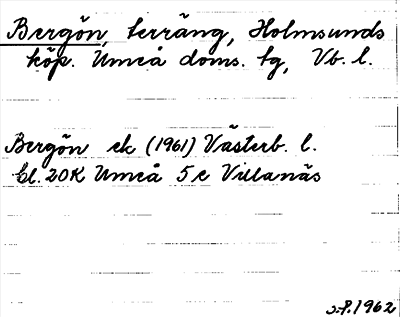 Bergön, terräng, Holmsunds
köp. Umeå doms. tg, Vb. l.
Bergön ek (1961) Västerb. l.
bl. 20K Umeå 5 c Villanäs
1962